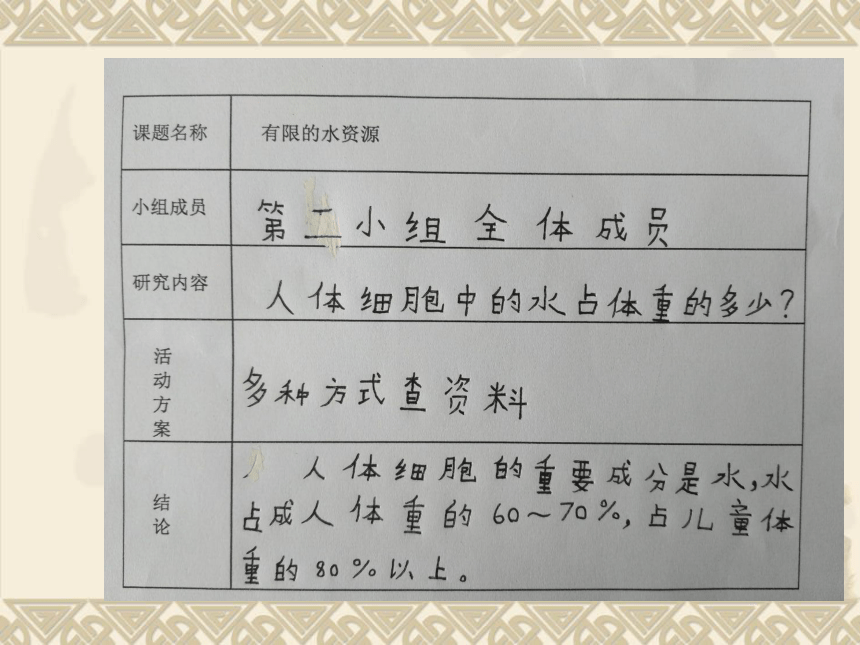 课题名称 有限的水资源
小组成员 第二小组全体成员
研究内容 人体细胞中的水占体重的多少？
活动方案 多种方式查资料
结论 人体细胞的重要成分是水，水
占成人体重的60～70%，占儿童体
重的80%以上。